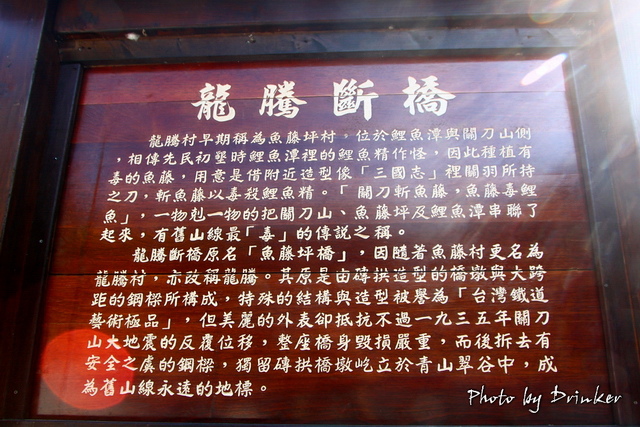 龍騰斷橋
龍騰村早期稱為魚藤坪村。位於鯉魚潭與關刀山側
，相傳先民初墾時鯉魚潭裡的鯉魚精作怪，因此種植有
毒的魚藤，用意是借附近造型像「三國志」裡關羽所持
之刀，斬魚藤以毒殺鯉魚精。「關刀斬魚藤，魚藤毒鯉
魚」，一物剋一物的把關刀山、魚藤坪及鯉魚潭串聯了
起來，有舊山線最「毒」的傳說之稱。
龍騰斷橋原名「魚藤坪橋」，因隨著魚藤村更名為
龍騰村，亦改稱龍騰。其原是由磚拱造型的橋墩與大跨
距的鋼樑所構成，特殊的結構與造型被譽為「台灣鐵道
藝術極品」，但美麗的外表卻抵抗不過一九三五年關刀
山大地震的反覆位移，整座橋身毀損嚴重，而後拆去有
安全之虞的鋼樑，獨留磚拱橋墩屹立於青山翠谷中，成
為舊山線永遠的地標。
Photo by Drinker